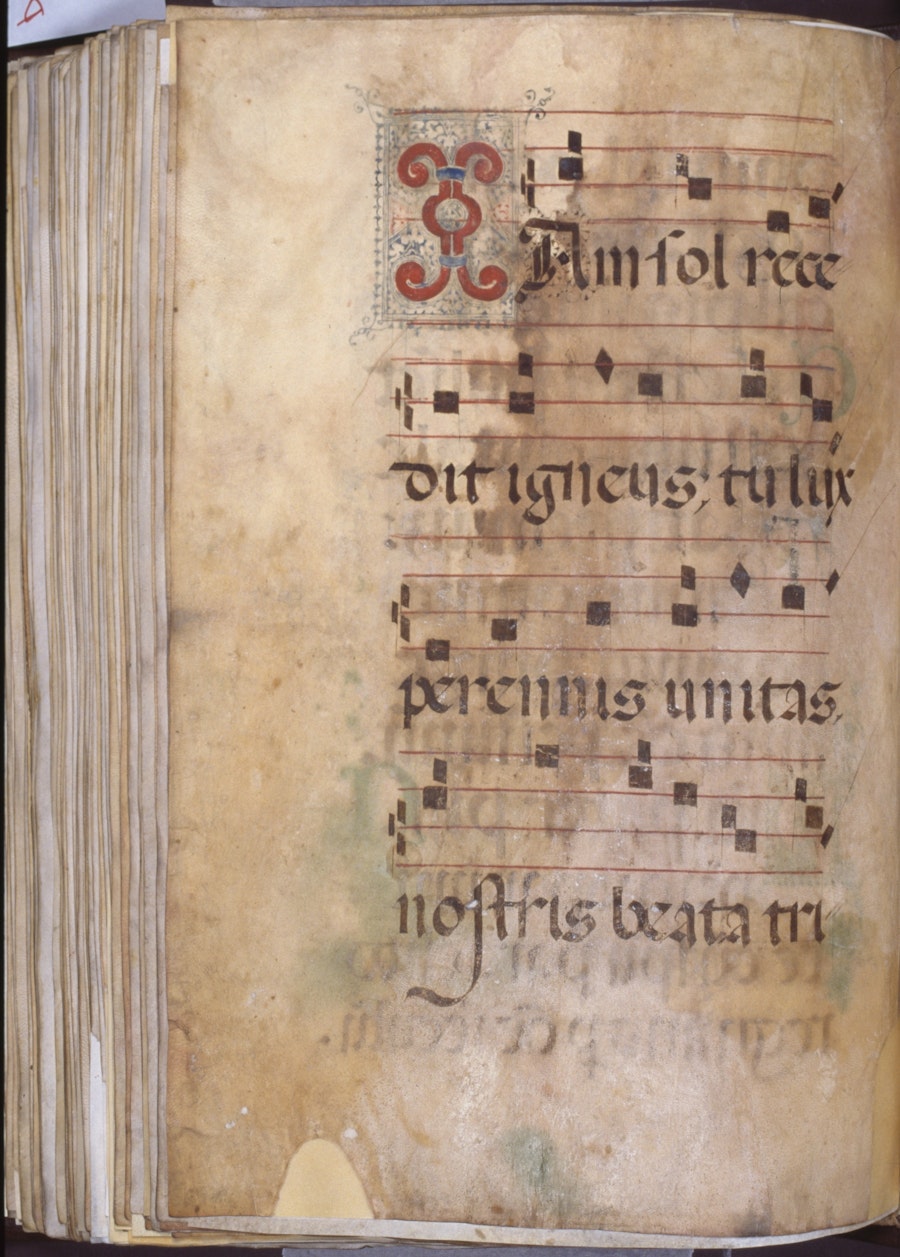 IAm sol rece
dit igneus; tu lux
perennis unitas,
nostris beata tri